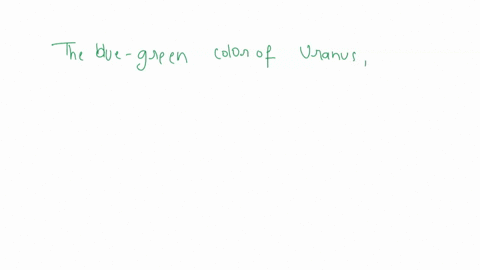 The blue-green color of Uranus,